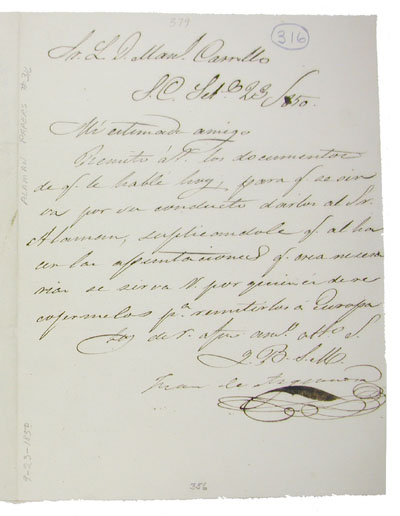 379
316
Sr. L. D. Manl. Carrillo
S.C. Set.e 23 /850.
Mi estimado amigo
Remito á V. los documentos
de q. le hablé hoy, para q. se sir
va por su conducto darlos al Sr.
Alaman, suplicandole q. al ha
cer las apuntaciones q. crea necesa
rias se sirva V. por
cojermelos pa. remitirlos á Europa
Soy de V. afmo amo. atto S.
Q. B. S. M.
Juan de
ALAMAN PAPERS
9-23-1850
356